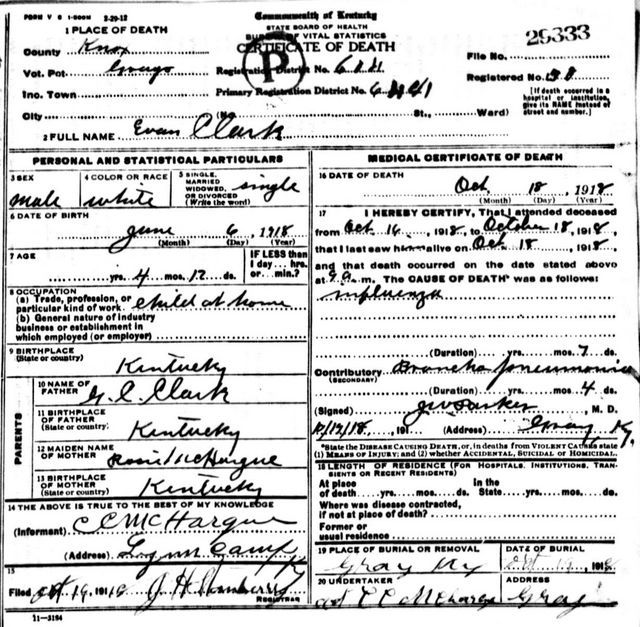 FORM V S 1-500M 2-29-12
Commonwealth of Kentucky
STATE BOARD OF HEALTH
BUREAU OF VITAL STATISTICS
CERTIFICATE OF DEATH
P
1 PLACE OF DEATH
County Knox
Vot. Pct
Inc. Town
City
Registration District No.
Primary Registration District No.
(No. St., Ward)
File No. 29333
Registered No.
[If death occurred in a hospital or institution, give its NAME instead of street and number.]
2 FULL NAME Evan Clark
PERSONAL AND STATISTICAL PARTICULARS
3 SEX male
4 COLOR OR RACE white
5 SINGLE, MARRIED WIDOWED, OR DIVORCED (Write the word) single
6 DATE OF BIRTH
June 6, 1918
(Month) (Day) (Year)
7 AGE
yrs. 4 mos. 12 ds.
IF LESS than 1 day... hrs. or... min.?
8 OCCUPATION
(a) Trade, profession, or particular kind of work child at home
(b) General nature of industry business or establishment in which employed (or employer)
9 BIRTHPLACE
(State or country) Kentucky
PARENTS
10 NAME OF FATHER G. C. Clark
11 BIRTHPLACE OF FATHER
(State or country) Kentucky
12 MAIDEN NAME OF MOTHER McHargue
13 BIRTHPLACE OF MOTHER
(State or country) Kentucky
14 THE ABOVE IS TRUE TO THE BEST OF MY KNOWLEDGE
(Informant) C C McHargue
(Address) Lynn Camp Ky
15
Filed Oct 19, 191 J H REGISTRAR
11-3184
MEDICAL CERTIFICATE OF DEATH
16 DATE OF DEATH
Oct 18, 1918
(Month) (Day) (Year)
17 I HEREBY CERTIFY, That I attended deceased
from Oct 16, 1918, to October 18, 1918,
that I last saw him alive on Oct 18, 1918,
and that death occurred on the date stated above
at m. The CAUSE OF DEATH* was as follows:
influenza
(Duration) yrs. mos. 7 ds.
Contributory Broncho pneumonia
(SECONDARY)
(Duration) yrs. mos. 4 ds.
(Signed) J W Parker, M. D.
191 (Address) Gray Ky
*State the DISEASE CAUSING DEATH, or, in deaths from VIOLENT CAUSES state (1) MEANS OF INJURY; and (2) whether ACCIDENTAL, SUICIDAL or HOMICIDAL.
18 LENGTH OF RESIDENCE (FOR HOSPITALS, INSTITUTIONS, TRANSIENTS OR RECENT RESIDENTS)
At place of death yrs. mos. ds. In the State yrs. mos. ds.
Where was disease contracted, if not at place of death?
Former or usual residence
19 PLACE OF BURIAL OR REMOVAL Gray Ky
DATE OF BURIAL Oct 19, 1918
20 UNDERTAKER C C McHargue
ADDRESS Gray